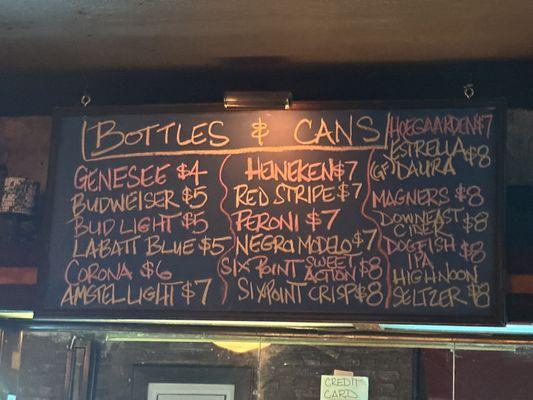 BOTTLES & CANS
GENESEE $4
BUDWEISER $5
BUD LIGHT $5
LABATT BLUE $5
CORONA $6
AMSTEL LIGHT $7
HEINEKEN $7
RED STRIPE $7
PERONI $7
NEGRO MODELO $7
SIXPOINT SWEET ACTION $8
SIXPOINT CRISP $8
HOEGAARDEN $7
ESTRELLA
(GF) DAURA $8
MAGNERS $8
DOWNEAST
CIDER $8
DOGFISH
IPA $8
HIGH NOON
SELTZER $8
CREDIT
CARD